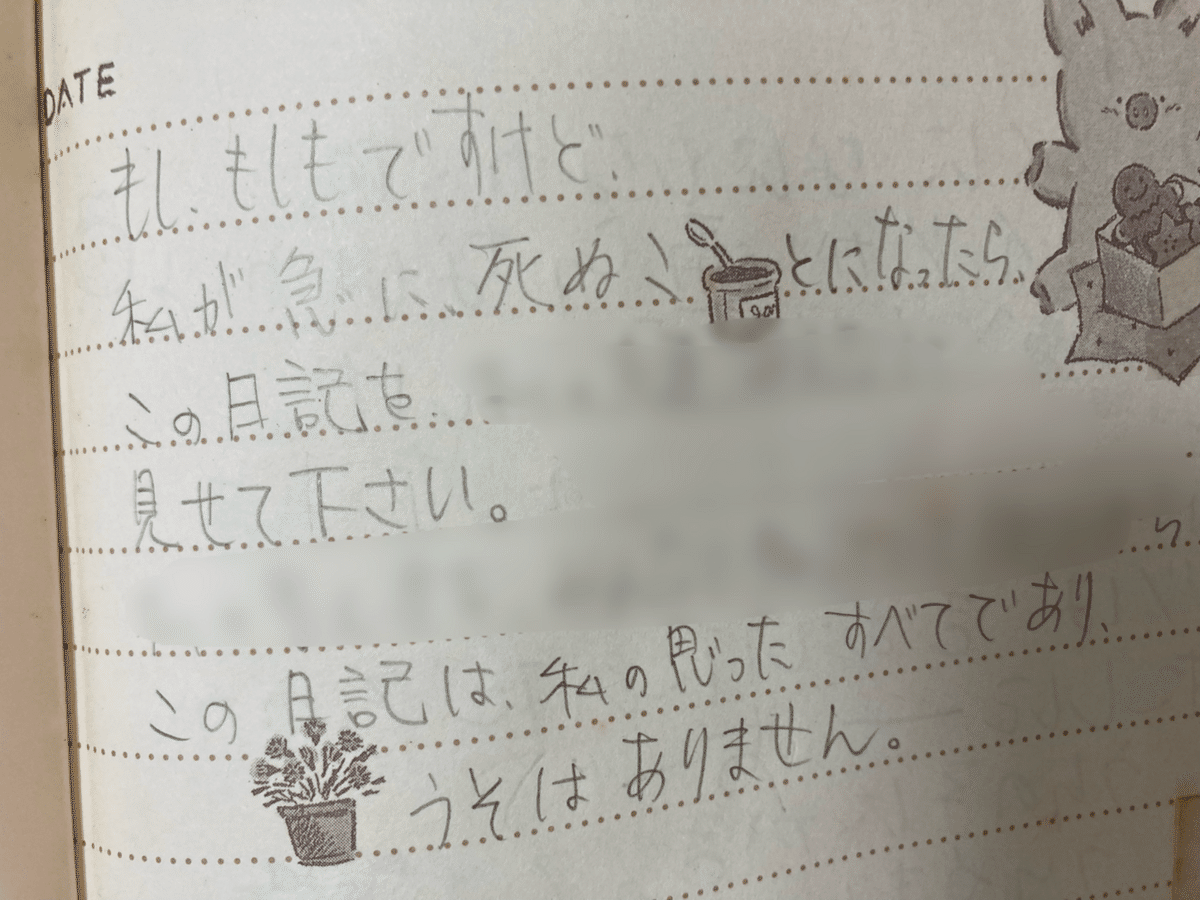 DATE
もし、もしもですけど、
私が急に、死ぬことになったら、
この日記を、
見せて下さい。
この日記は、私の思ったすべてであり、
うそはありません。